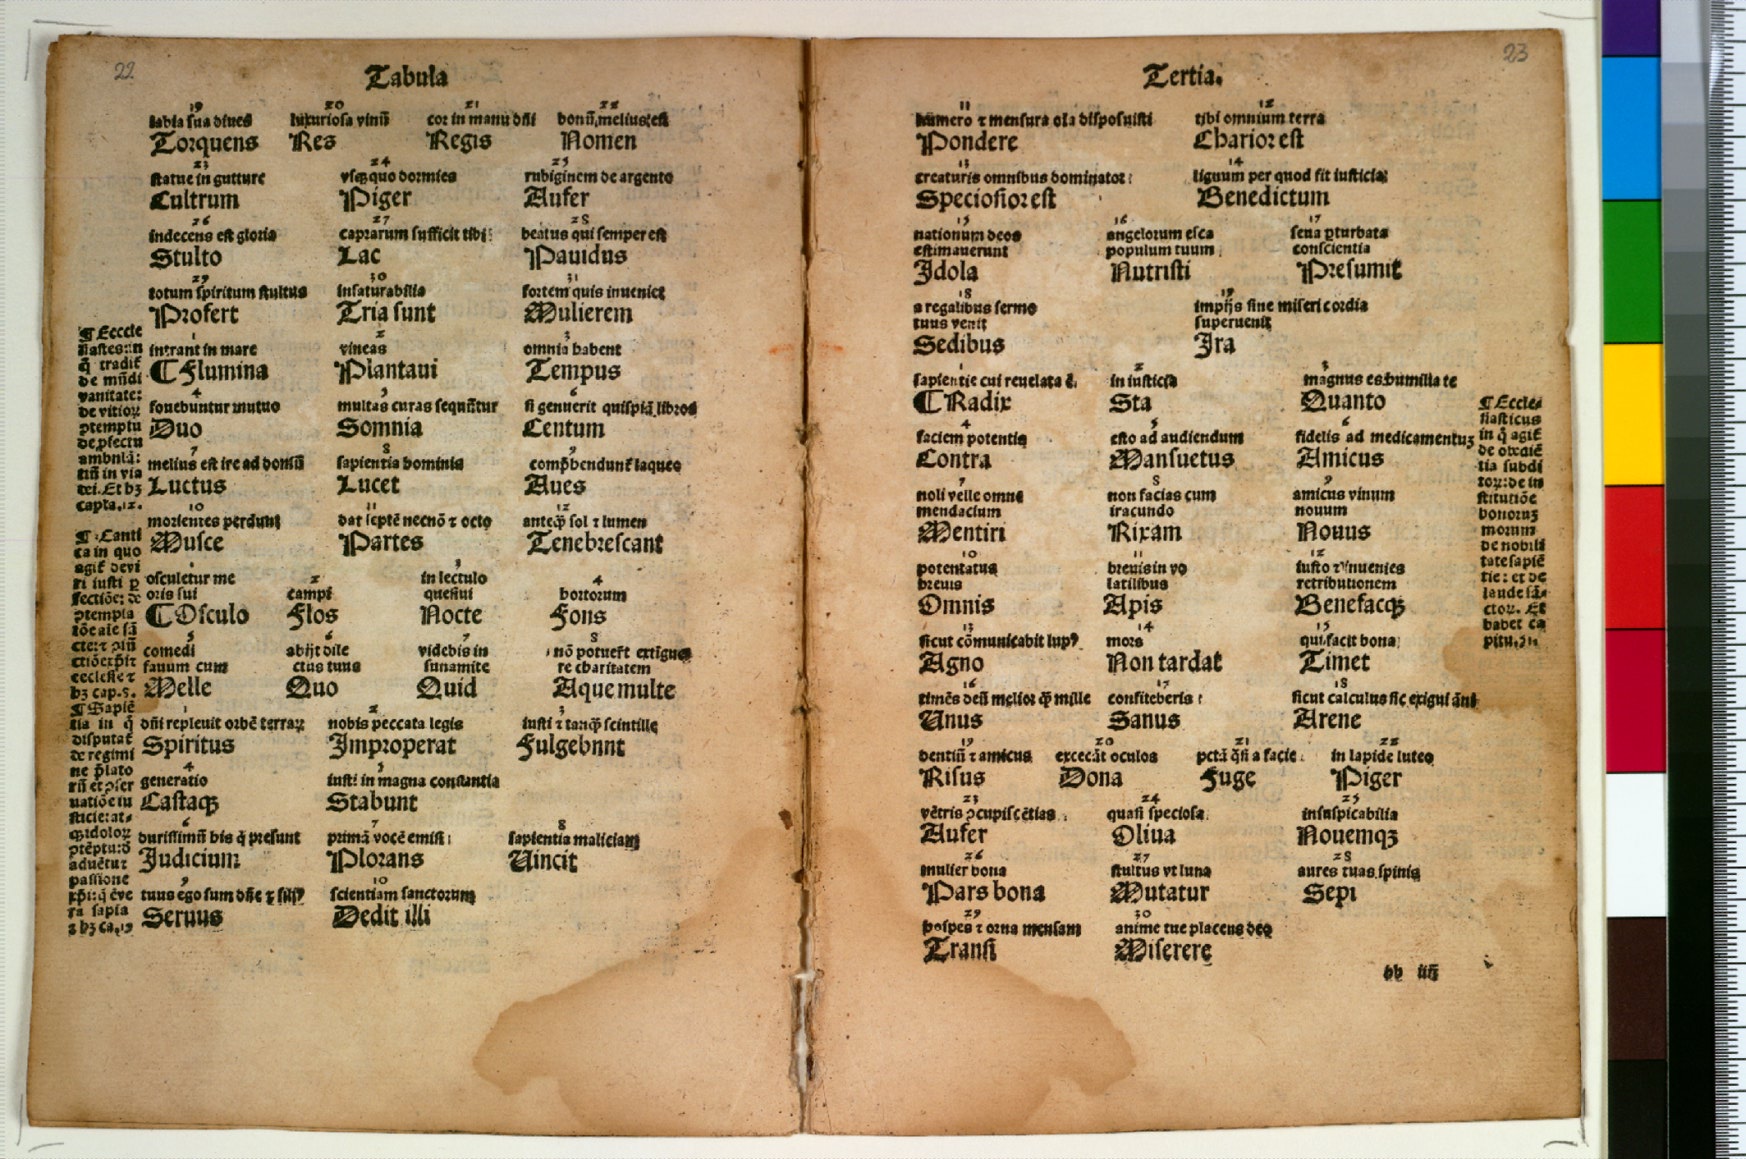 22
Tabula
19 20 21 22
labia sua diues luxuriosa vinū cor in manu dñi bonū, melius est
Torquens Res Regis Nomen
23 24 25
statue in gutture vsqꝫ quo dormies rubiginem de argento
Cultrum Piger Aufer
26 27 28
indecens est gloria caprarum sufficit tibi: beatus qui semper est
Stulto Lac Pauidus
29 30 31
totum spiritum stultus insaturabilia fortem quis inueniet
Profert Tria sunt Mulierem
1 2 3
intrant in mare vineas omnia habent
¶ Flumina Plantaui Tempus
4 5 6
fouebuntur mutuo multas curas sequūtur si genuerit quispiā liberos
Duo Somnia Centum
7 8 9
melius est ire ad domū sapientia hominis
Luctus Lucet Aues
10 11 12
morientes perdunt dat septē necnō ⁊ octo anteꝙ̄ sol ⁊ lumen
Musce Partes Tenebrescant
1 2 3 4
osculetur me in lectulo
oris sui campi quesiui hortorum
¶ Osculo Flos Nocte Fons
5 6 7 8
comedi abijt dile videbis in nō potuerūt extīgue
fauum cum ctus tuus sunamite re charitatem
Melle Quo Quid Aque multe
1 2 3
dñi repleuit orbē terraꝝ nobis peccata legis iusti ⁊ tanꝙ̄ scintille
Spiritus Improperat Fulgebnnt
4 5
generatio iusti in magna constantia
Castaqꝫ Stabunt
6 7 8
durissimū his q̄ presunt primā vocē emisi: sapientia maliciam
Judicium: Plorans Uincit
9 10
tuus ego sum dñe ⁊ filiꝰ scientiam sanctorum
Seruus Dedit illi
¶ Eccle
siastes: in
q̄ tradit̄
de mūdi
vanitate:
de vitioꝝ
ꝯtemptu
tiū in via
dei. Et hꝫ
capła. 12.
¶ Canti
ca in quo
agit̄ de vi
ri iusti ꝑ
fectiōe: de
ꝯtempla
ecclesie ⁊
hꝫ cap. 8.
¶ Sapiē
tia in q̄
disputat̄
de regimi
ne p̄lato
passione
ra sapia
⁊ hꝫ ca. 19
23
Tertia.
11 12
numero ⁊ mensura oīa disposuisti tibi omnium terra
Pondere Charior est
13 14
creaturis omnibus dominator: lignum per quod fit iusticia:
Speciosior est Benedictum
15 16 17
nationum deos angelorum esca seua ꝑturbata
estimauerunt populum tuum conscientia
Idola Nutristi Presumit
18 19
a regalibus sermo impijs sine misericordia
tuus venit superuenit
Sedibus Ira
1 2 3
sapientie cui reuelata ē. in iusticia magnus es humilia te
¶ Radix Sta Quanto
4 5 6
faciem potentis esto ad audiendum fidelis ad medicamentuꝫ
Contra Mansuetus Amicus
7 8 9
noli velle omne non facias cum amicus vinum
mendacium iracundo nouum
Mentiri Rixam Nouus
10 11 12
potentatus breuis in vo iusto ⁊ inuenies
breuis latilibus retributionem
Omnis Apis Benefacqꝫ
13 14 15
sicut cōmunicabit lupꝰ mors qui facit bona
Agno Non tardat Timet
16 17 18
timēs deū melior ꝙ̄ mille confiteberis: sicut calculus sic exigui āni
Unus Sanus Arene
19 20 21 22
dentiū ⁊ amictus excecāt oculos pctā q̄si a facie: in lapide luteo
Risus Dona Fuge Piger
23 24 25
vētris ꝯcupiscētias. quasi speciosa. insuspicabilia
Aufer Oliua Nouemqꝫ
26 27 28
mulier bona stultus vt luna aures tuas spinis
Pars bona Mutatur Sepi
29 30
hospes ⁊ orna mensam anime tue placens deo
Transi Miserere
¶ Eccle
siasticus
in q̄ agit̄
de obediē
tia subdi
toꝝ: de in
stitutiōe
bonoruꝫ
morum
de nobili
tate sapiē
tie: et de
laude sā
ctoꝝ. Et
habet ca
pitu. 51.
bb iiij